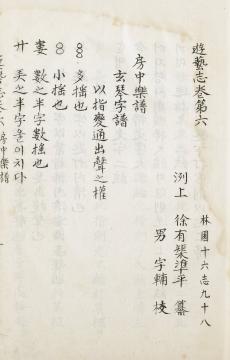 林園十六志九十八
遊藝志卷第六
洌上 徐有榘準平 纂
男 宇輔 校
房中樂譜
玄琴字譜
以指變通出聲之權
多搖也
小搖也
婁 數之半字數搖也
之半字
遊藝志卷六 房中樂譜 一